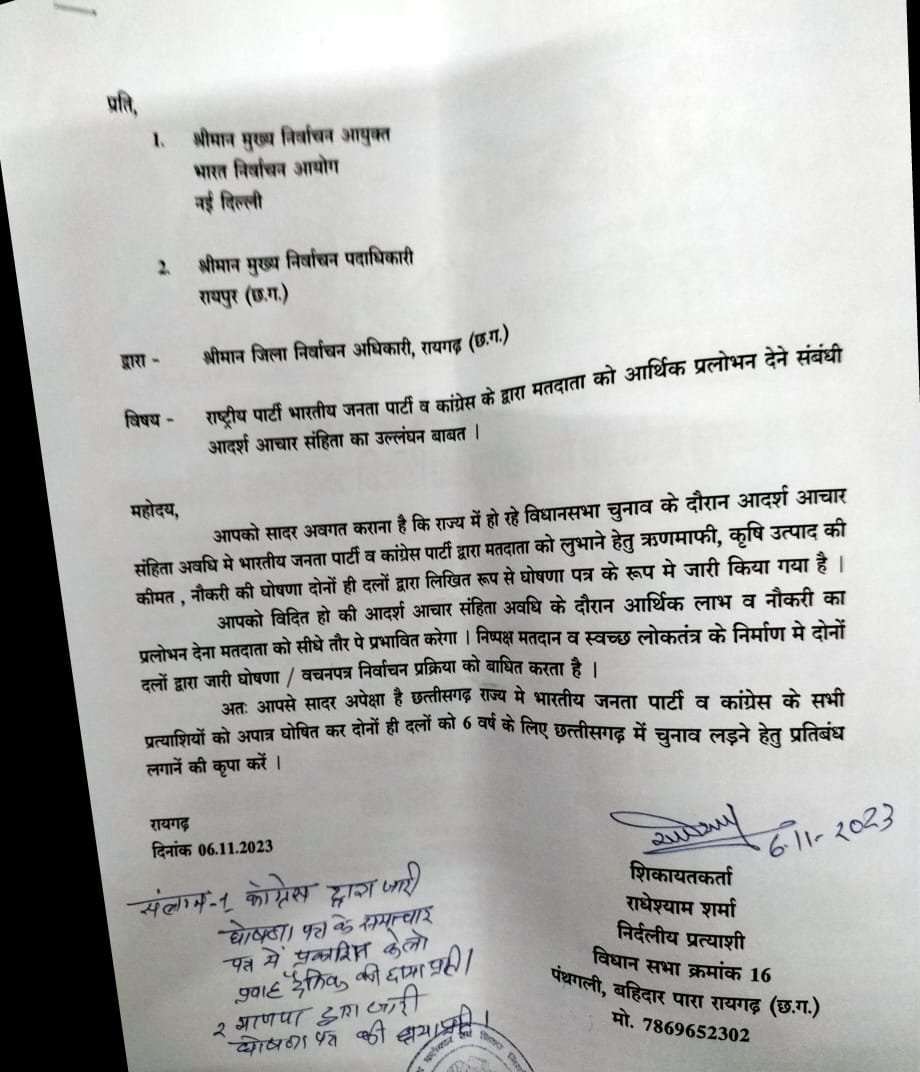 प्रति,
1. श्रीमान मुख्य निर्वाचन आयुक्त
भारत निर्वाचन आयोग
नई दिल्ली
2. श्रीमान मुख्य निर्वाचन पदाधिकारी
रायपुर (छ.ग.)
द्वारा - श्रीमान जिला निर्वाचन अधिकारी, रायगढ़ (छ.ग.)
विषय - राष्ट्रीय पार्टी भारतीय जनता पार्टी व कांग्रेस के द्वारा मतदाता को आर्थिक प्रलोभन देने संबंधी
आदर्श आचार संहिता का उल्लंघन बाबत ।
महोदय,
आपको सादर अवगत कराना है कि राज्य में हो रहे विधानसभा चुनाव के दौरान आदर्श आचार
संहिता अवधि मे भारतीय जनता पार्टी व कांग्रेस पार्टी द्वारा मतदाता को लुभाने हेतु ऋणमाफी, कृषि उत्पाद की
कीमत , नौकरी की घोषणा दोनों ही दलों द्वारा लिखित रूप से घोषणा पत्र के रूप मे जारी किया गया है ।
आपको विदित हो की आदर्श आचार संहिता अवधि के दौरान आर्थिक लाभ व नौकरी का
प्रलोभन देना मतदाता को सीधे तौर पे प्रभावित करेगा । निष्पक्ष मतदान व स्वच्छ लोकतंत्र के निर्माण मे दोनों
दलों द्वारा जारी घोषणा / वचनपत्र निर्वाचन प्रक्रिया को बाधित करता है ।
अतः आपसे सादर अपेक्षा है छत्तीसगढ़ राज्य मे भारतीय जनता पार्टी व कांग्रेस के सभी
प्रत्याशियों को अपात्र घोषित कर दोनों ही दलों को 6 वर्ष के लिए छत्तीसगढ़ में चुनाव लड़ने हेतु प्रतिबंध
लगानें की कृपा करें ।
रायगढ़
दिनांक 06.11.2023
6.11.2023
शिकायतकर्ता
राधेश्याम शर्मा
निर्दलीय प्रत्याशी
विधान सभा क्रमांक 16
पंथगली, बहिदार पारा रायगढ़ (छ.ग.)
मो. 7869652302
संलग्न-1 कांग्रेस द्वारा जारी
घोषणा पत्र के समाचार
पत्र में प्रकाशित केलो
प्रवाह दैनिक की छाया प्रती।
2 भाजपा द्वारा जारी
घोषणा पत्र की छाया प्रती।